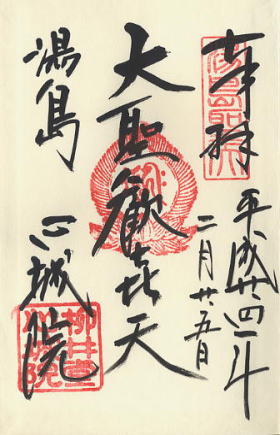 奉拝
平成廿四年
二月廿五日
大聖歡喜天
湯島
心城院
柳井堂
心城院